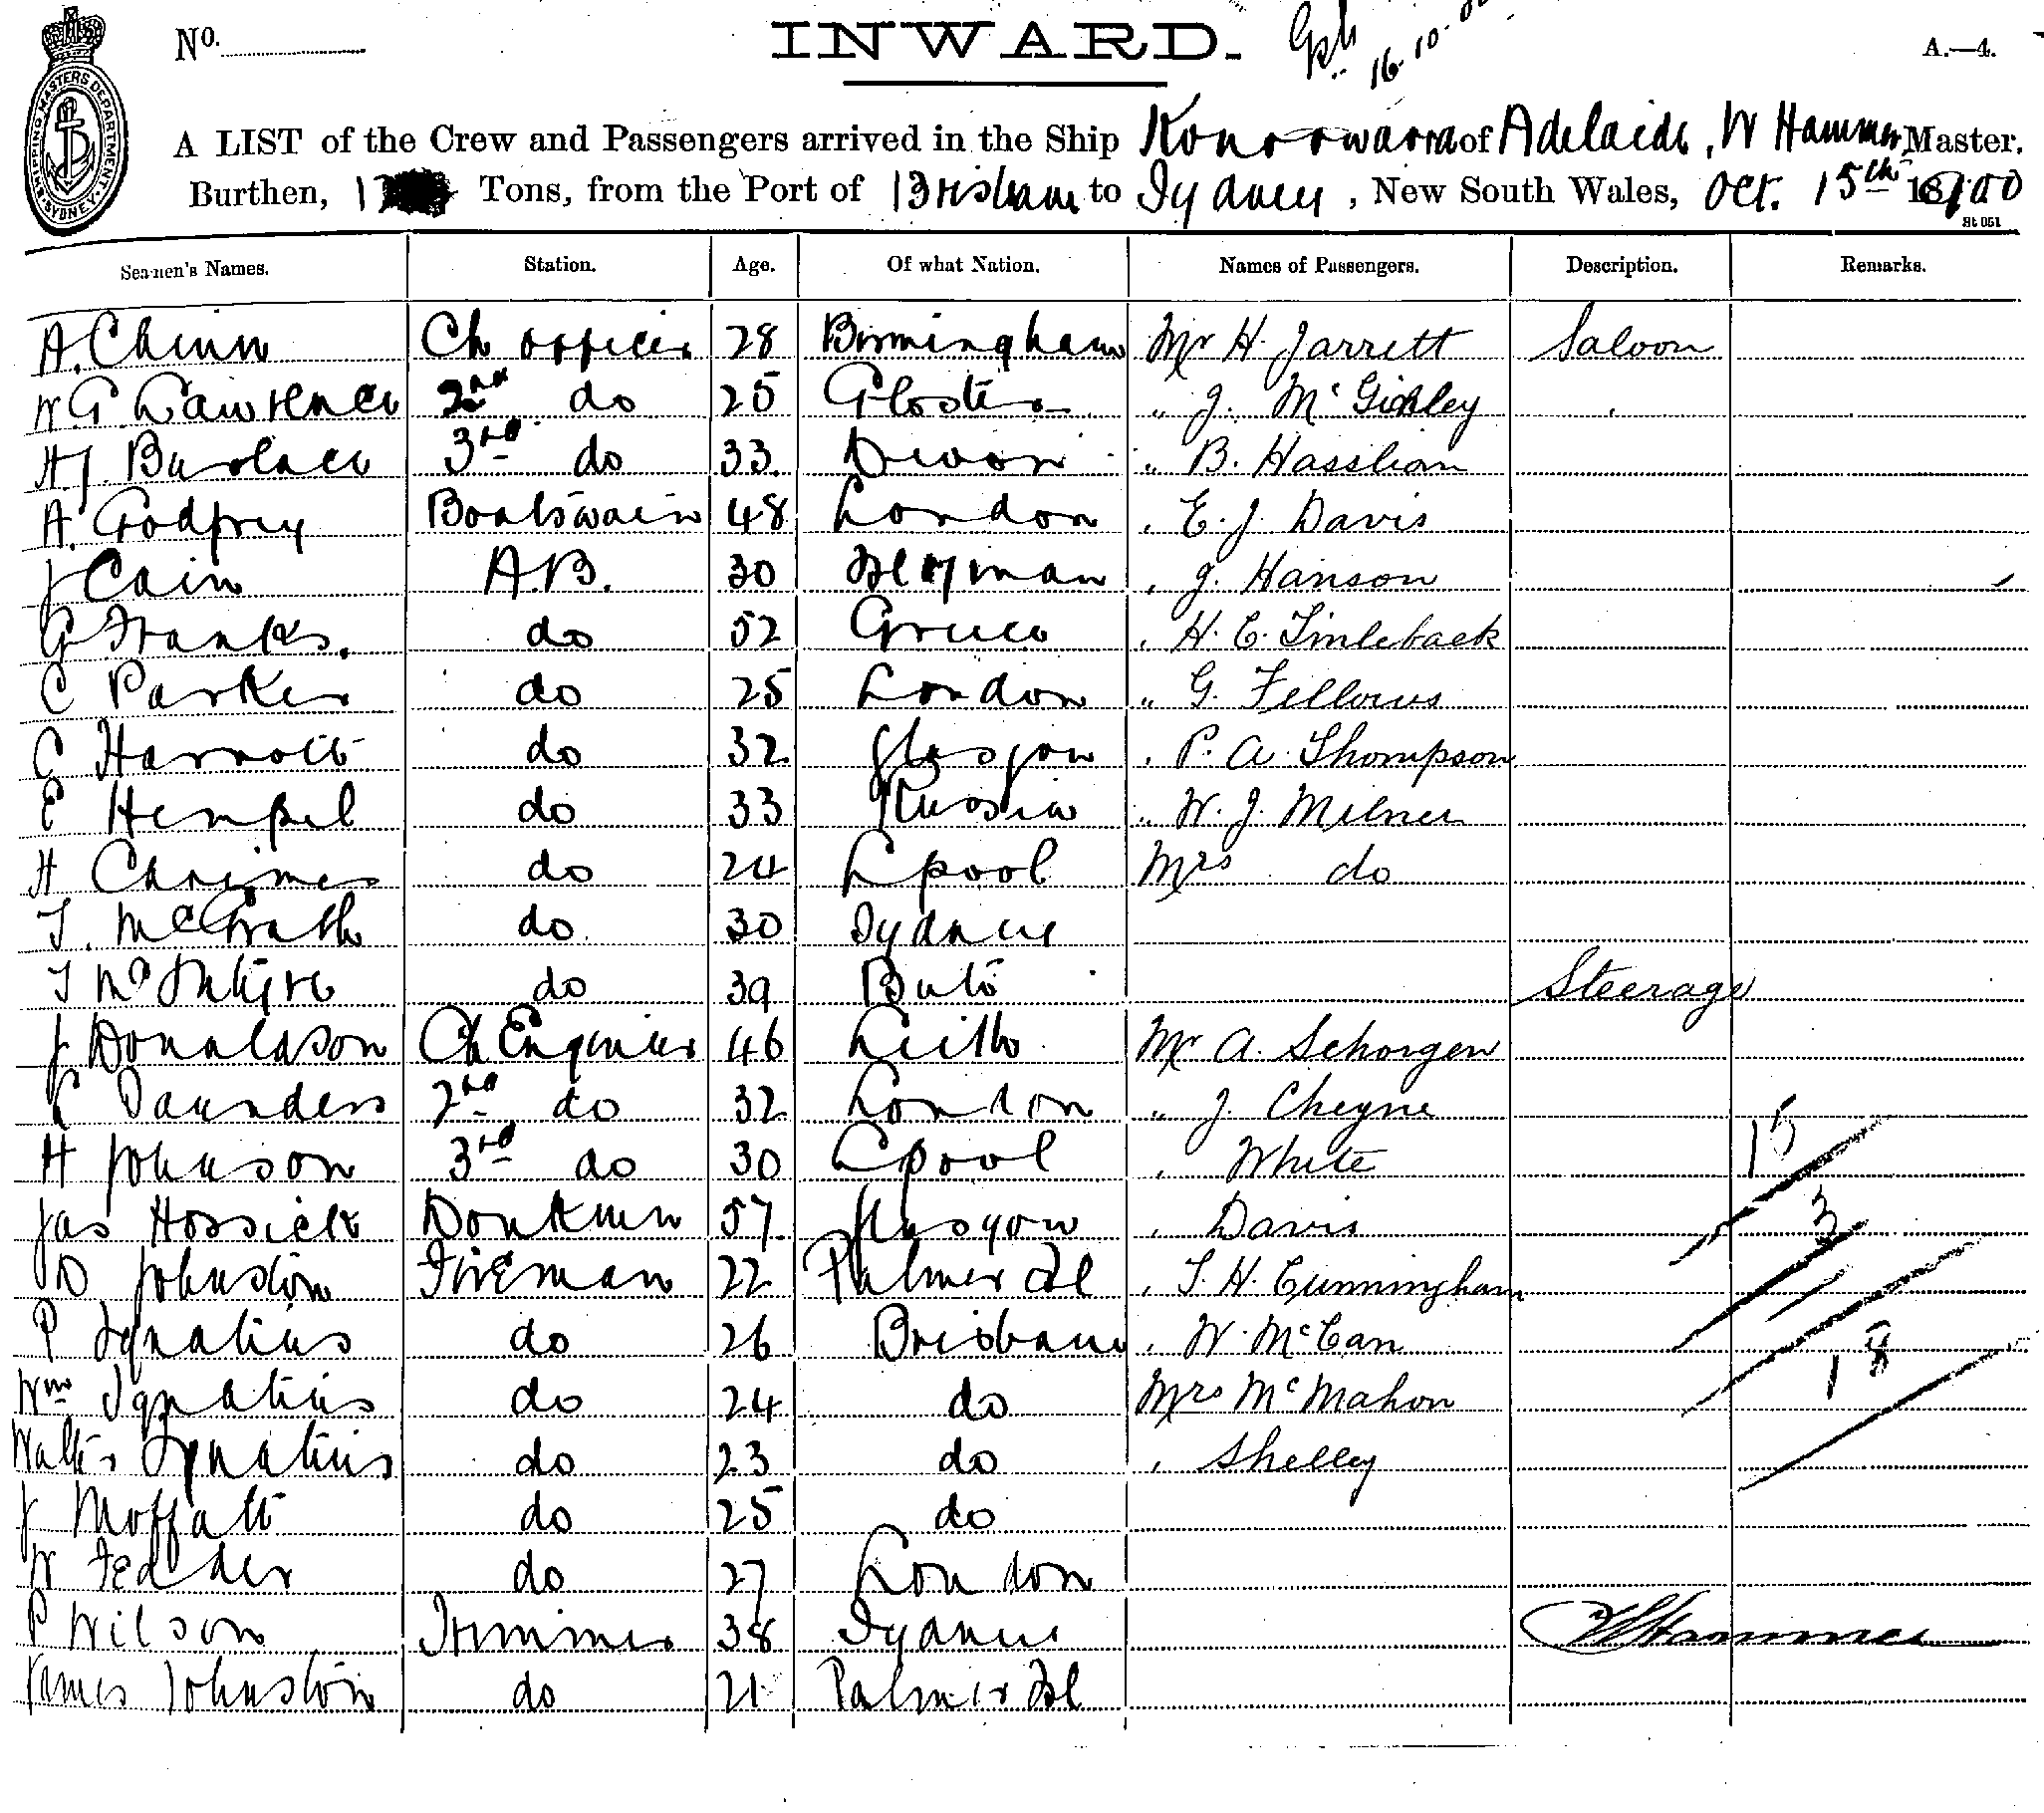 No.
INWARD.
16.10.00
A.—4.
SHIPPING MASTERS DEPARTMENT SYDNEY
A LIST of the Crew and Passengers arrived in the Ship Konoowarra of Adelaide, W Hammer Master,
Burthen, Tons, from the Port of Brisbane to Sydney, New South Wales, Oct. 15th 1900
St 051
Seamen's Names. Station. Age. Of what Nation. Names of Passengers. Description. Remarks.
A. Chinn Ch officer 28 Birmingham Mr H. Jarrett Saloon
W G Lawrence 2nd do 25 Gloster " J. McGinley
H J. Burlace 3rd do 33 Devon " B. Hasslian
A. Godfrey Boatswain 48 London , E. J. Davis
J Cain A.B. 30 Isle of man , J. Hanson
G Franks. do 52 Greece , H. E. Timleback
C Parker do 25 London " G. Fellows
C Harrott do 32 Glasgow , P. A. Thompson
E Hempel do 33 Russia " W. J. Milner
H Chrimes do 24 Lpool Mrs do
T. McGrath do 30 Sydney
T McIntyre do 39 Bute Steerage
J Donaldson Ch Engineer 46 Leith Mr A. Schorgen
Saunders 2nd do 32 London " J. Cheyne
H Johnson 3rd do 30 Lpool , White 15
Jas Hossick Donkman 57 Glasgow , Davis 3
D Johnston Fireman 22 Palmer Isl , T. H. Cunningham
P Ignatius do 26 Brisbane , W. McCan 18
Wm Ignatius do 24 do Mrs McMahon
Walter Ignatius do 23 do , Shelley
J Moffatt do 25 do
W Feader do 27 London
P Wilson Trimmer 38 Sydney W Hammer
James Johnston do 21 Palmer Isl